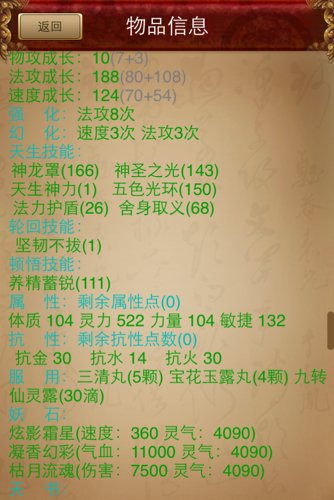 返回
物品信息
物攻成长：10(7+3)
法攻成长：188(80+108)
速度成长：124(70+54)
强 化：法攻8次
幻 化：速度3次 法攻3次
天生技能：
神龙罩(166) 神圣之光(143)
天生神力(1) 五色光环(150)
法力护盾(26) 舍身取义(68)
轮回技能：
坚韧不拔(1)
顿悟技能：
养精蓄锐(111)
属 性：剩余属性点(0)
体质 104 灵力 522 力量 104 敏捷 132
抗 性：剩余抗性点数(0)
抗金 30 抗水 14 抗火 30
服 用：三清丸(5颗) 宝花玉露丸(4颗) 九转
仙灵露(30滴)
妖 石：
炫影霜星(速度：360 灵气：4090)
凝香幻彩(气血：11000 灵气：4090)
枯月流魂(伤害：7500 灵气：4090)
天 书：